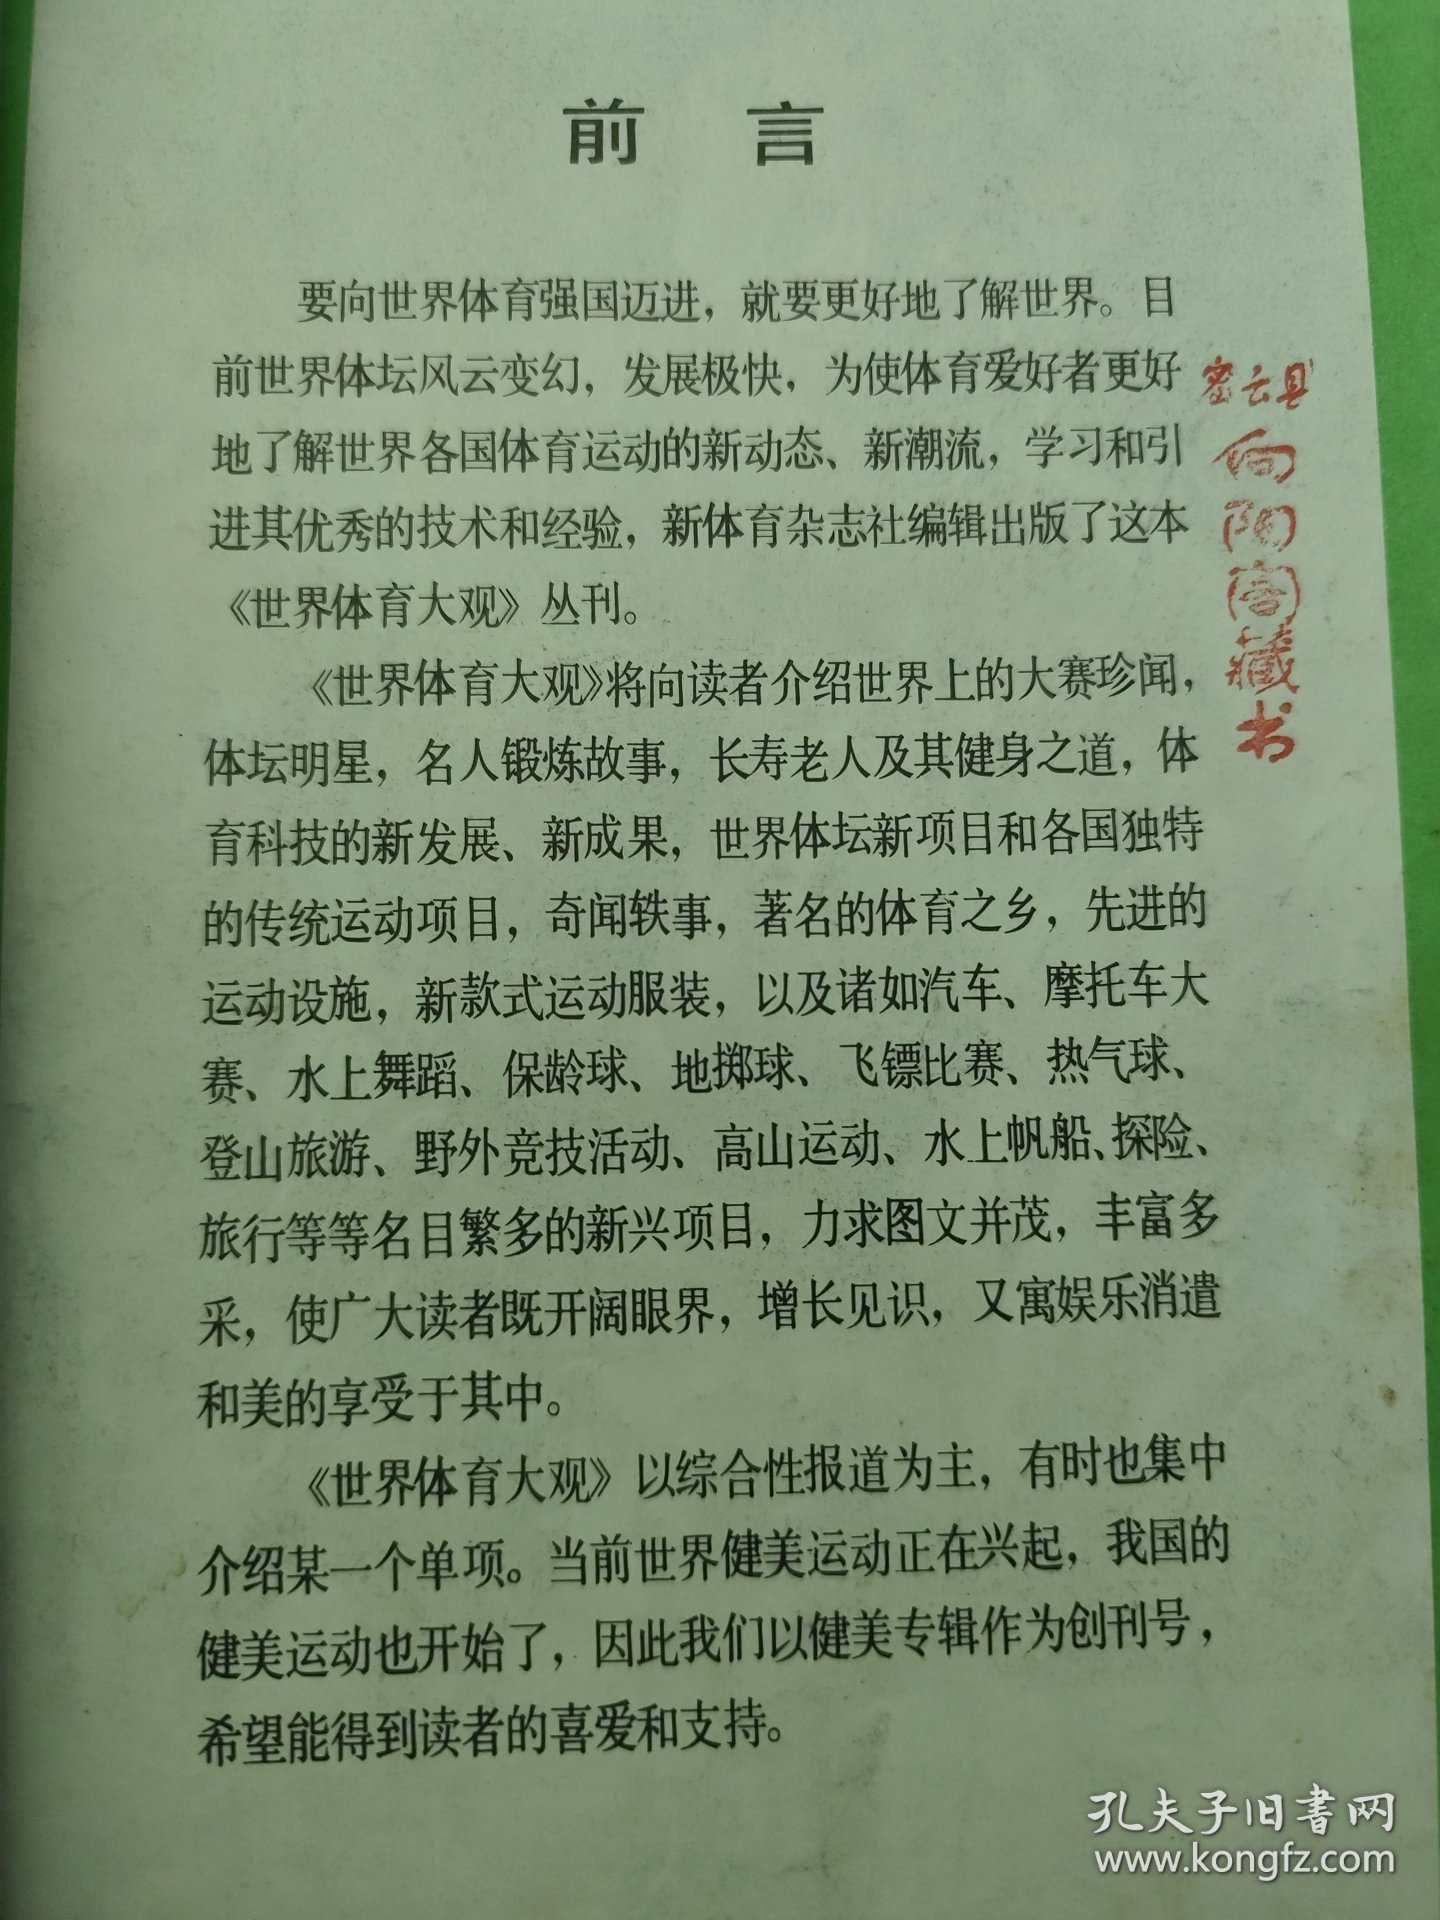 前言
要向世界体育强国迈进，就要更好地了解世界。目
前世界体坛风云变幻，发展极快，为使体育爱好者更好
地了解世界各国体育运动的新动态、新潮流，学习和引
进其优秀的技术和经验，新体育杂志社编辑出版了这本
《世界体育大观》丛刊。
《世界体育大观》将向读者介绍世界上的大赛珍闻，
体坛明星，名人锻炼故事，长寿老人及其健身之道，体
育科技的新发展、新成果，世界体坛新项目和各国独特
的传统运动项目，奇闻轶事，著名的体育之乡，先进的
运动设施，新款式运动服装，以及诸如汽车、摩托车大
赛、水上舞蹈、保龄球、地掷球、飞镖比赛、热气球、
登山旅游、野外竞技活动、高山运动、水上帆船、探险、
旅行等等名目繁多的新兴项目，力求图文并茂，丰富多
采，使广大读者既开阔眼界，增长见识，又寓娱乐消遣
和美的享受于其中。
《世界体育大观》以综合性报道为主，有时也集中
介绍某一个单项。当前世界健美运动正在兴起，我国的
健美运动也开始了，因此我们以健美专辑作为创刊号，
希望能得到读者的喜爱和支持。
密云县
向阳阁藏书
孔夫子旧书网
www.kongfz.com